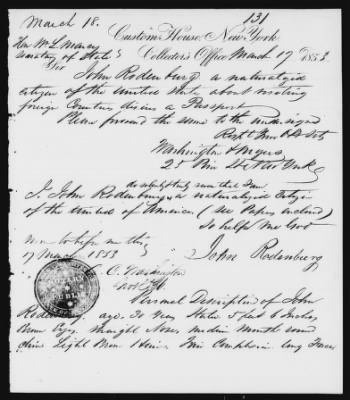 March 18.
131
Custom House, New York
Collector's Office March 17 1853
Hon Wm L Marcy
Secretary of State
Sir
John Rodenburg a naturalized
citizen of the United States about visiting
foreign Countries desires a Passport
Please forward the same to the undersigned
Washington & Meyers
25 Pine St New York
do solemnly swear that I am
I, John Rodenburg a naturalized Citizen
of the United of America (see Papers enclosed)
So help me God
Sworn to before me this
17 March 1853
John Rodenburg
C. Washington
Personal Description of John
Rodenburg age 30 Years Stature 5 feet 6 Inches
Brown Eyes straight Nose, medium Mouth round
Chin Light Brown Hair Fair Complexion long Face